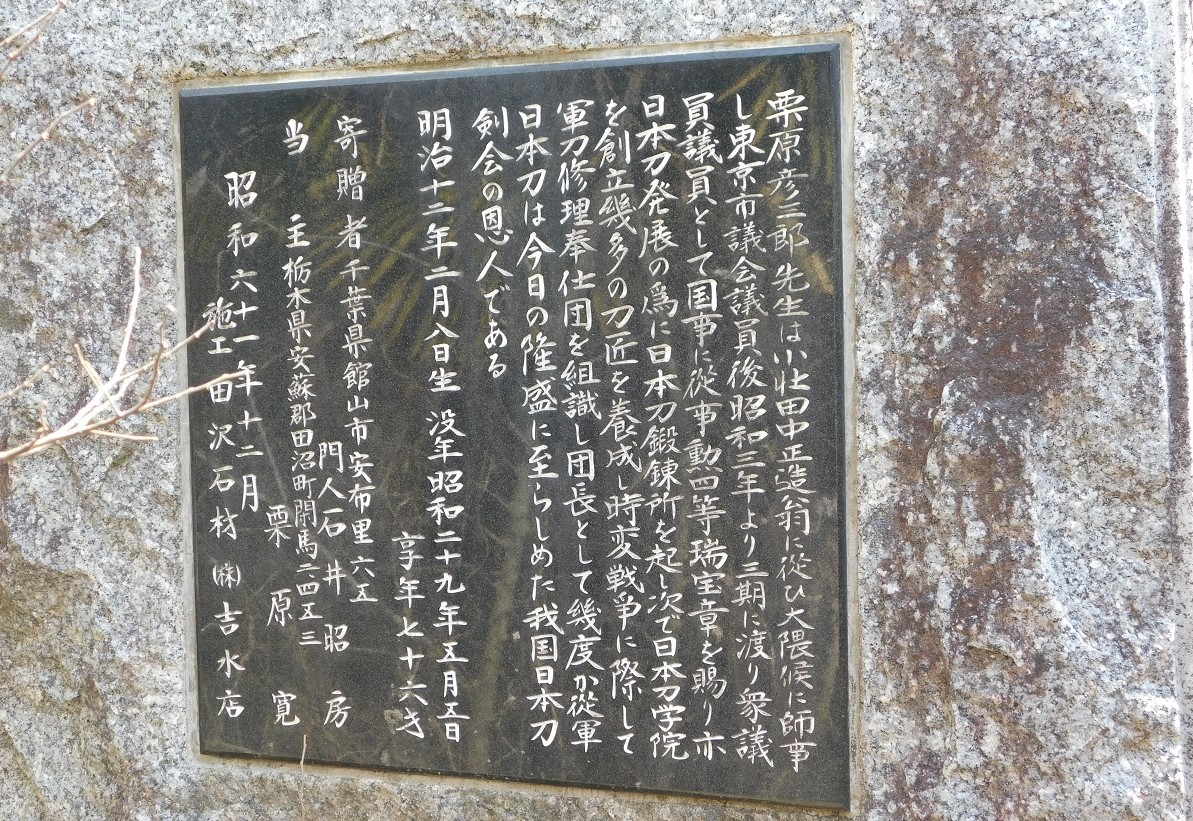 栗原彦三郎先生は小壮田中正造翁に従ひ大隈候に師事
し東京市議会議員後昭和三年より三期に渡り衆議
員議員として国事に從事勲四等瑞宝章を賜り亦
日本刀発展の為に日本刀鍛錬所を起し次で日本刀学院
を創立幾多の刀匠を養成し時変戦争に際して
軍刀修理奉仕団を組識し団長として幾度か從軍
日本刀は今日の隆盛に至らしめた我国日本刀
剣会の恩人である
明治十二年二月八日生 没年昭和二十九年五月五日
享年七十六才
寄贈者千葉県館山市安布里六五
門人石井昭房
当主栃木県安蘇郡田沼町閑馬二四五三
栗原寛
昭和六十一年十二月
施工田沢石材㈱吉水店